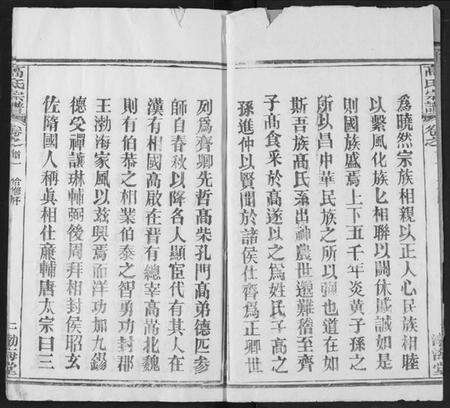 高氏宗譜
卷之
渤海堂
爲曉然宗族相親以正人心民族相睦
以繫風化族以相聯以關休戚誠如是
則國族盛焉上下五千年炎黃子孫之
所以昌中華民族之所以强也道在如
斯吾族高氏系出神農世遐難稽至齊
子高食采於高遂以之爲姓氏子高之
孫進仲以賢聞於諸侯仕齊爲正卿世
列爲齊卿先哲高柴孔門高弟德匹參
師自春秋以降名人顯宦代有其人在
漢有相國高啟在晋有總宰高嵩北魏
則有伯恭之相業伯泰之智勇功封郡
王渤海家風以茲興焉而洋功加九錫
德受禪讓琳輔弼後周拜相封侯昭玄
佐隋國人稱眞相仕廉輔唐太宗曰三
高氏宗譜
卷之首
一
渤海堂